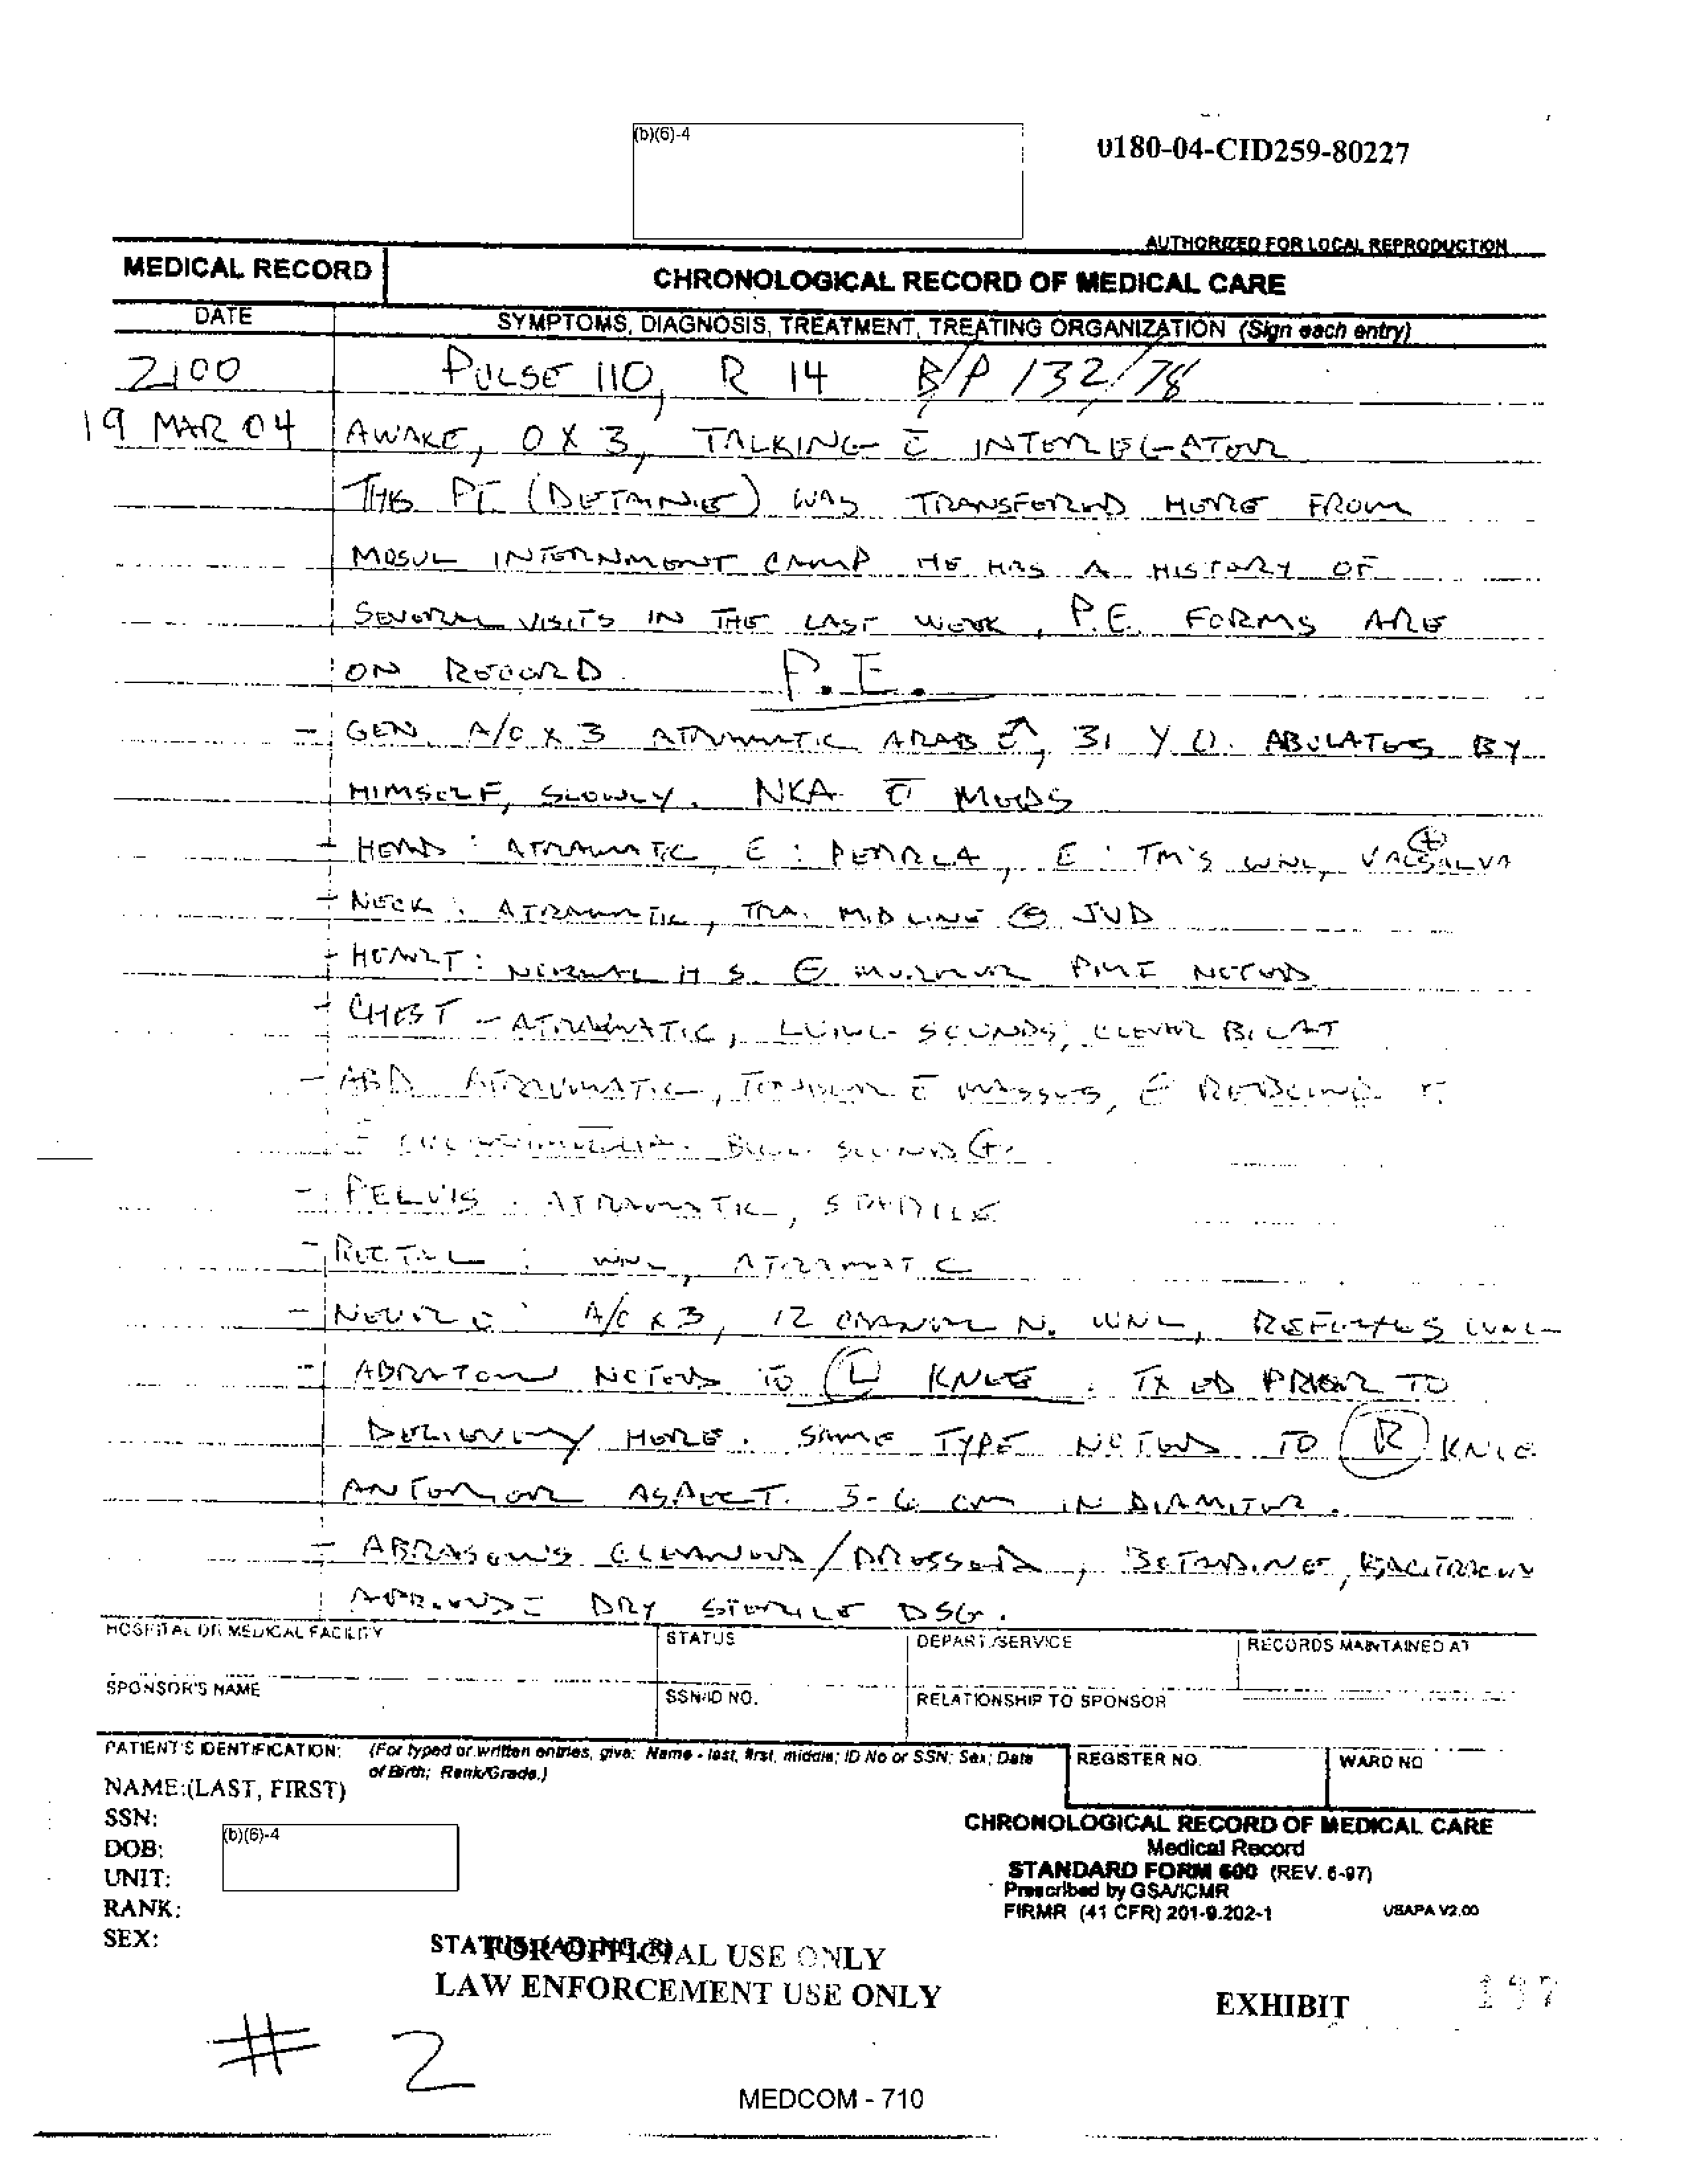 (b)(6)-4
0180-04-CID259-80227
AUTHORIZED FOR LOCAL REPRODUCTION
MEDICAL RECORD
CHRONOLOGICAL RECORD OF MEDICAL CARE
DATE
SYMPTOMS, DIAGNOSIS, TREATMENT, TREATING ORGANIZATION (Sign each entry)
2100 PULSE 110, R 14 B/P 132/78
19 MAR 04 AWAKE, O X 3, TALKING c̄ INTEREGATOR
THIS PT. (DETAINIE) WAS TRANSFERED HERE FROM
MOSUL INTERNMENT CAMP HE HAS A HISTORY OF
SEVERAL VISITS IN THE LAST WEEK, P.E. FORMS ARE
ON RECORD. P.E.
- GEN A/O X 3 ATRAUMATIC ARAB ♂, 31 Y O. ABULATES BY
HIMSELF, SLOWLY. NKA MEDS
- HEAD: ATRAMATIC, E: PEARRLA, E: TM'S WNL, VALSALVA (+)
- NECK: ATRAMATIC, TRA. MIDLINE ⊖ JVD
- HEART: NORMAL H S. ⊖ MURMUR PMI NOTED
- CHEST - ATRAMATIC, LUNG SOUNDS, CLEAR BILAT
- ABD ATRAUMATIC, MASSES, REBOUND
SOUNDS (+)
- PELVIS: ATRAMATIC, STABILE
- RECTAL: WNL, ATRAMATIC
- NEURO: A/O X 3, 12 CRANIAL N. WNL, REFLEXES WNL
- ABRATION NOTED TO (L) KNEE. TX ED PRIOR TO
DELIEVERY HERE. SAME TYPE NOTED TO (R) KNEE
ANTERIOR ASPECT. 5-6 CM IN DIAMITER.
- ABRASIONS CLEANED/DRESSED, BETADINE, BACITRACIN
DRY STERILE DSG.
HOSPITAL OR MEDICAL FACILITY
STATUS
DEPART./SERVICE
RECORDS MAINTAINED AT
SPONSOR'S NAME
SSN/ID NO.
RELATIONSHIP TO SPONSOR
PATIENT'S IDENTIFICATION: (For typed or written entries, give: Name - last, first, middle; ID No or SSN; Sex; Date
of Birth; Rank/Grade.)
REGISTER NO.
WARD NO
NAME:(LAST, FIRST)
SSN:
DOB:
UNIT:
RANK:
SEX:
(b)(6)-4
CHRONOLOGICAL RECORD OF MEDICAL CARE
Medical Record
STANDARD FORM 600 (REV. 6-97)
Prescribed by GSA/ICMR
FIRMR (41 CFR) 201-9.202-1
USAPA V2.00
FOR OFFICIAL USE ONLY
LAW ENFORCEMENT USE ONLY
EXHIBIT 197
# 2
MEDCOM - 710